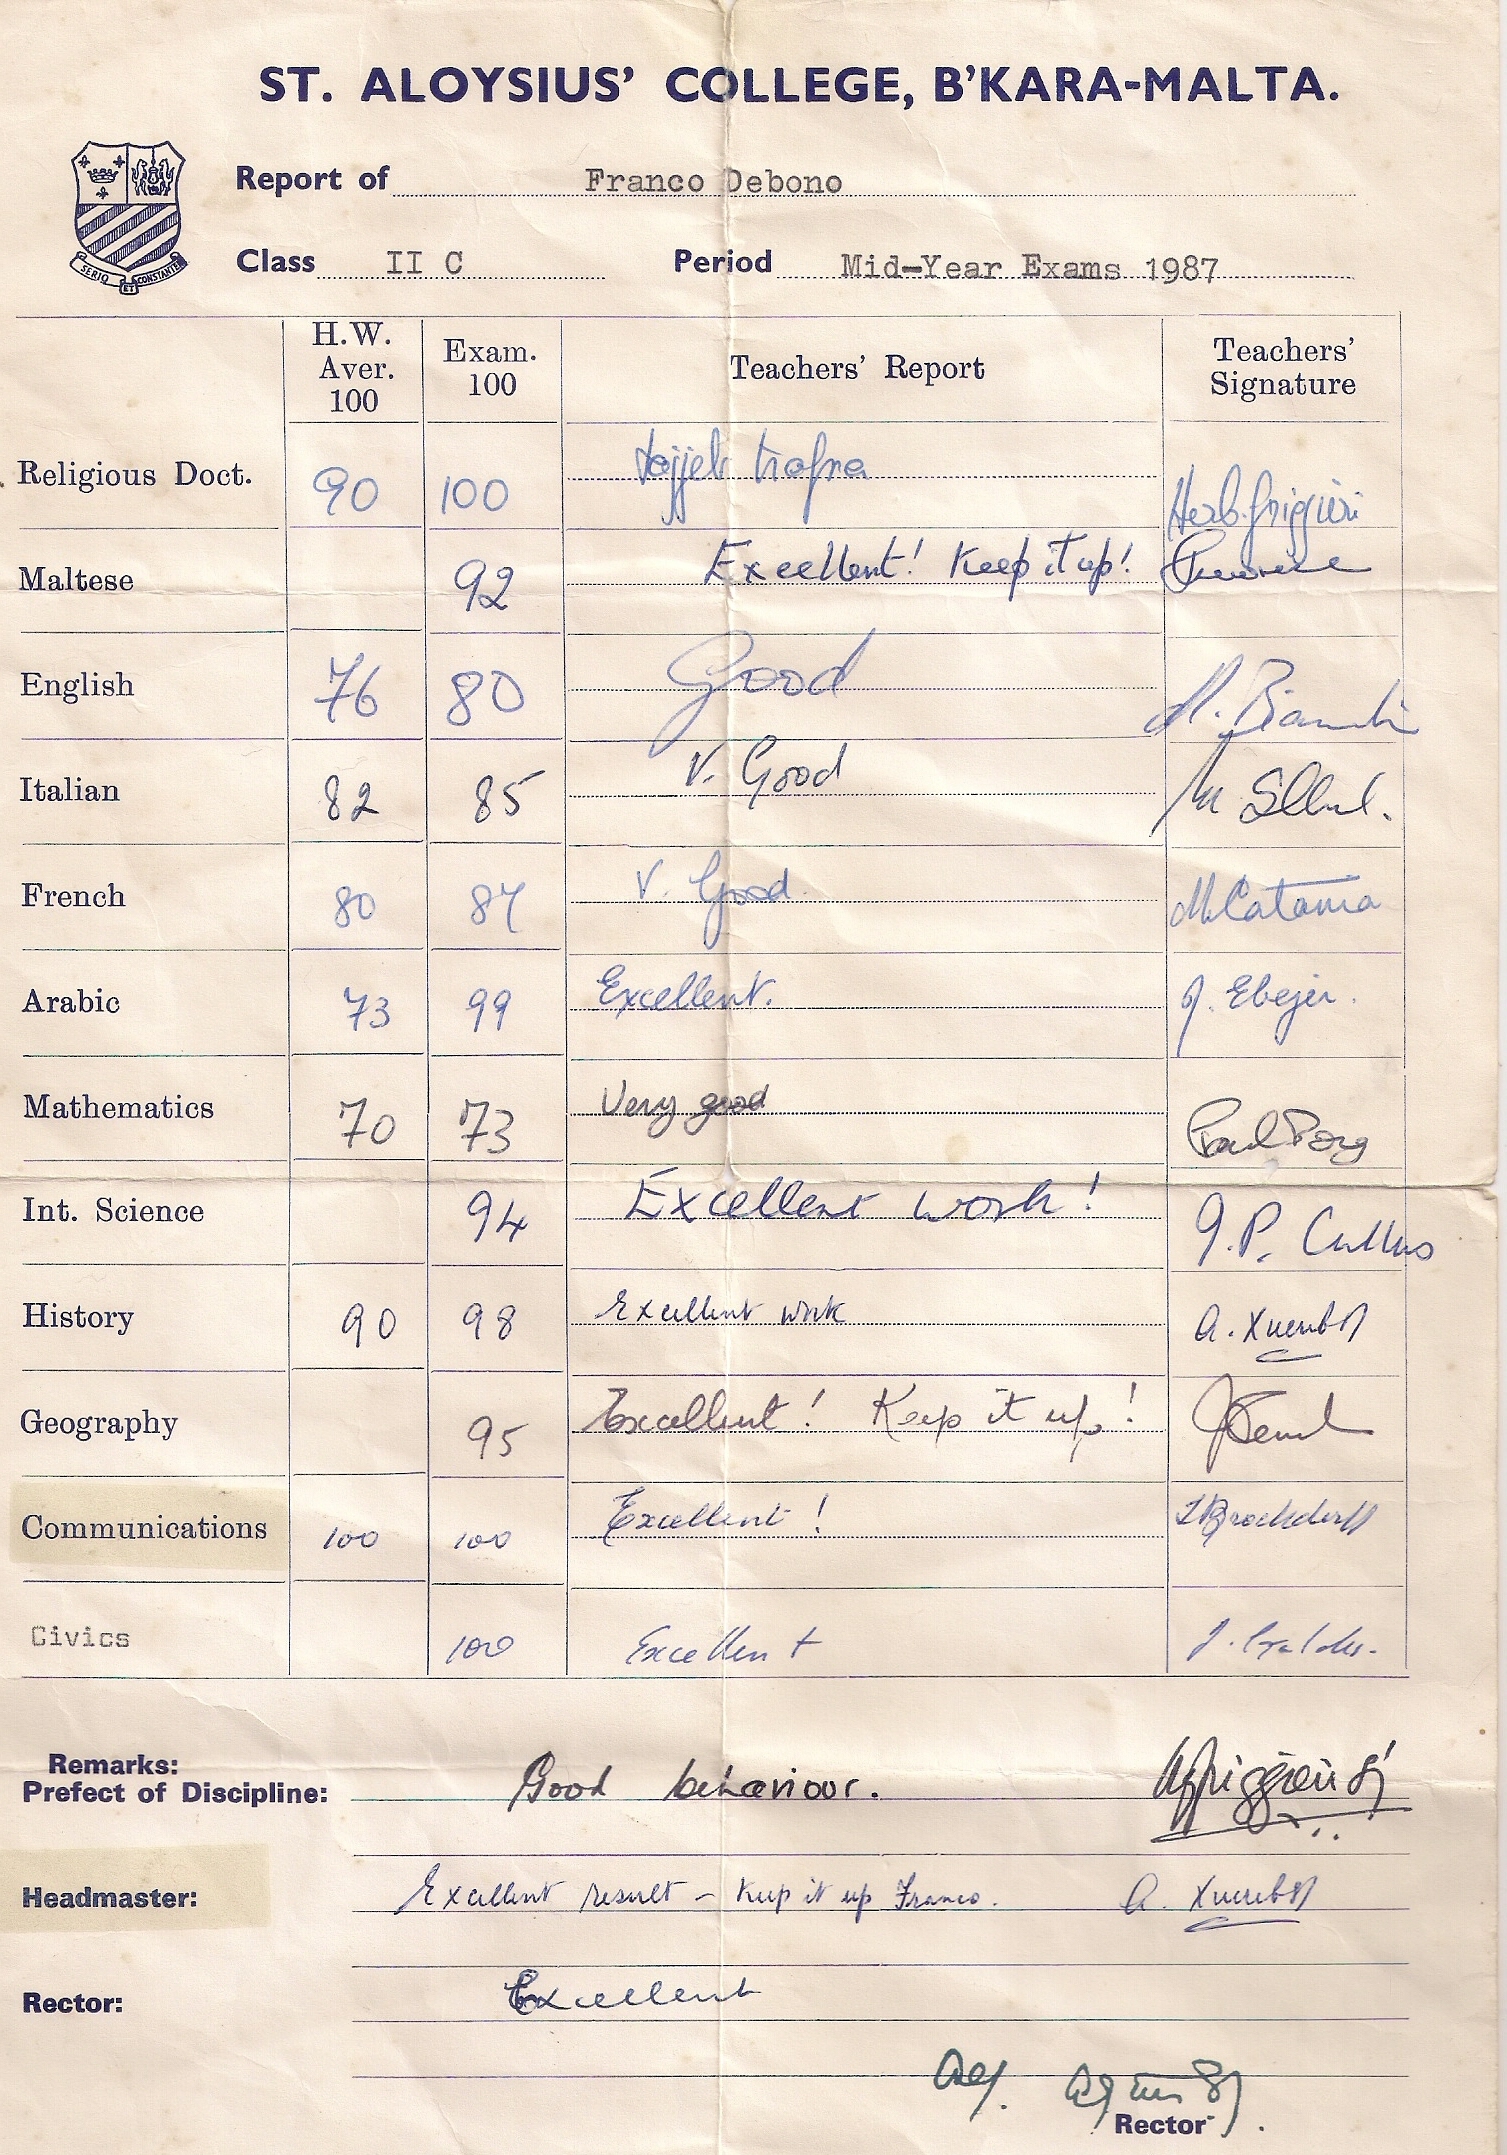 ST. ALOYSIUS' COLLEGE, B'KARA-MALTA.
SERIO ET CONSTANTER
Report of Franco Debono
Class II C Period Mid-Year Exams 1987
H.W. Aver. 100 Exam. 100 Teachers' Report Teachers' Signature
Religious Doct. 90 100 tajjeb ħafna Herb. Griggieri
Maltese 92 Excellent! Keep it up!
English 76 80 Good
Italian 82 85 V. Good
French 80 87 V. Good M Catania
Arabic 73 99 Excellent. J. Ebejer.
Mathematics 70 73 Very good Paul Borg
Int. Science 94 Excellent work!
History 90 98 Excellent work A. Xuereb SJ
Geography 95 Excellent! Keep it up!
Communications 100 100 Excellent!
Civics 100 Excellent
Remarks:
Prefect of Discipline: Good behaviour.
Headmaster: Excellent result – keep it up Franco. A. Xuereb SJ
Rector: Excellent
Rector